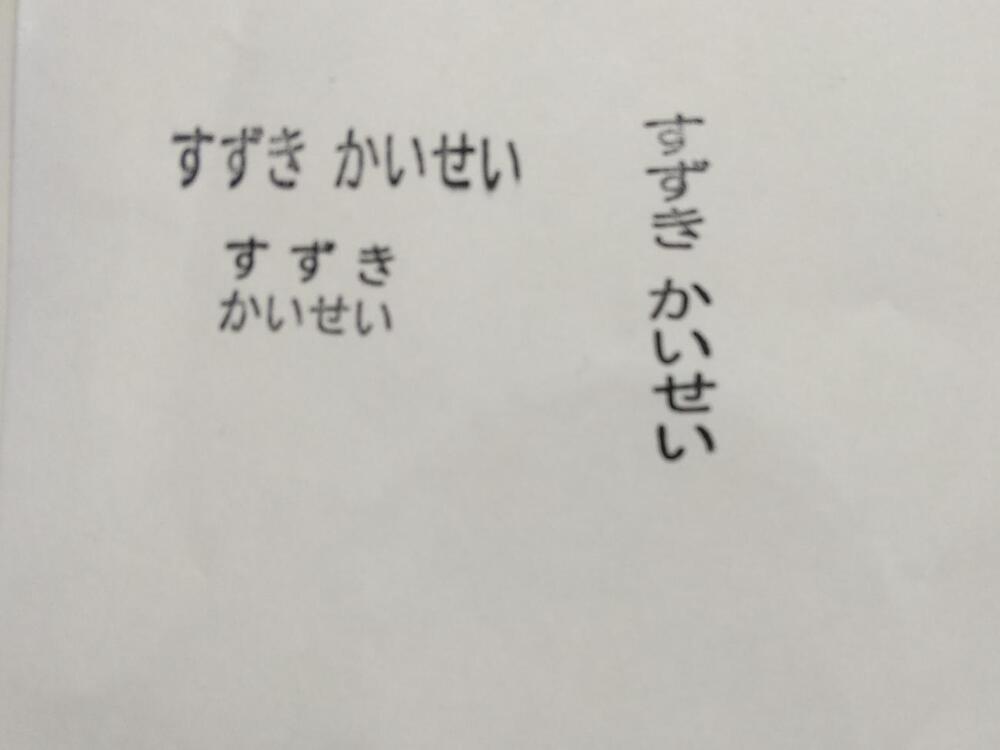 すずき かいせい
すずき
かいせい
すずき かいせい